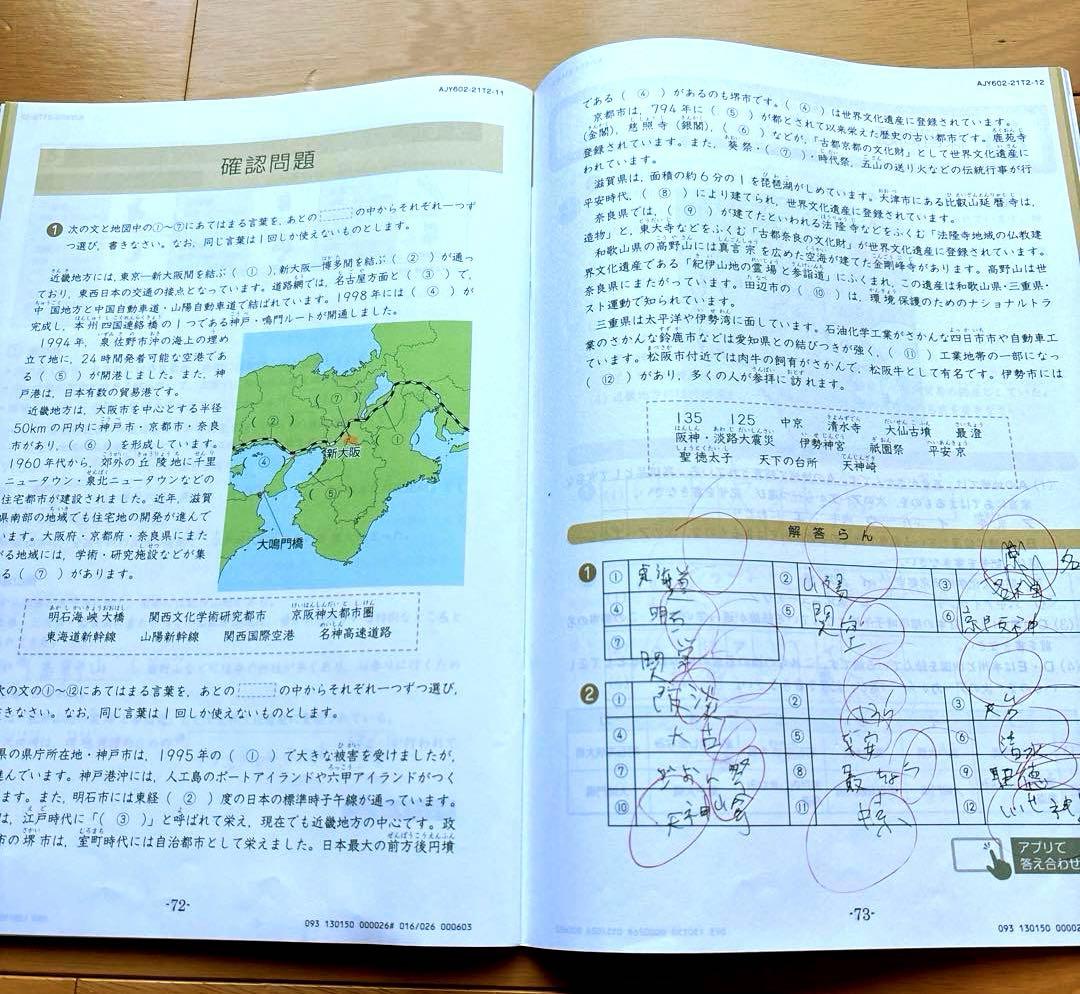 AJY602-21T2-11
確認問題
1 次の文と地図中の①〜⑦にあてはまる言葉を、あとの の中からそれぞれ一つず
つ選び、書きなさい。なお、同じ言葉は1回しか使えないものとします。
近畿地方には、東京―新大阪間を結ぶ( ① )、新大阪―博多間を結ぶ( ② )が通っ
ており、東西日本の交通の接点となっています。道路網では、名古屋方面と( ③ )で、
中国地方と中国自動車道・山陽自動車道で結ばれています。1998年には( ④ )が
完成し、本州四国連絡橋の1つである神戸・鳴門ルートが開通しました。
1994年、泉佐野市沖の海上の埋め
立て地に、24時間発着可能な空港であ
る( ⑤ )が開港しました。また、神
戸港は、日本有数の貿易港です。
近畿地方は、大阪市を中心とする半径
50kmの円内に神戸市・京都市・奈良
市があり、( ⑥ )を形成しています。
1960年代から、郊外の丘陵地に千里
ニュータウン・泉北ニュータウンなどの
住宅都市が建設されました。近年、滋賀
県南部の地域でも住宅地の開発が進んで
います。大阪府・京都府・奈良県にまた
がる地域には、学術・研究施設などが集
る( ⑦ )があります。
( ⑦ )
( ② )
( ① )
新大阪
④
( ⑤ )
大鳴門橋
明石海峡大橋 関西文化学術研究都市 京阪神大都市圏
東海道新幹線 山陽新幹線 関西国際空港 名神高速道路
次の文の①〜⑫にあてはまる言葉を、あとの の中からそれぞれ一つずつ選び、
きなさい。なお、同じ言葉は1回しか使えないものとします。
県の県庁所在地・神戸市は、1995年の( ① )で大きな被害を受けましたが、
進んでいます。神戸港沖には、人工島のポートアイランドや六甲アイランドがつく
ます。また、明石市には東経( ② )度の日本の標準時子午線が通っています。
は、江戸時代に「( ③ )」と呼ばれて栄え、現在でも近畿地方の中心です。政
市の堺市は、室町時代には自治都市として栄えました。日本最大の前方後円墳
-72-
093 130150 000026# 016/026 000603
AJY602-21T2-12
である( ④ )があるのも堺市です。( ④ )は世界文化遺産に登録されています。
京都市は、794年に( ⑤ )が都とされて以来栄えた歴史の古い都市です。鹿苑寺
(金閣)、慈照寺(銀閣)、( ⑥ )などが、「古都京都の文化財」として世界文化遺産に
登録されています。また、葵祭・( ⑦ )・時代祭、五山の送り火などの伝統行事が行
われています。
滋賀県は、面積の約6分の1を琵琶湖がしめています。大津市にある比叡山延暦寺は、
平安時代、( ⑧ )により建てられ、世界文化遺産に登録されています。
奈良県では、( ⑨ )が建てたといわれる法隆寺などをふくむ「法隆寺地域の仏教建
造物」と、東大寺などをふくむ「古都奈良の文化財」が世界文化遺産に登録されています。
和歌山県の高野山には真言宗を広めた空海が建てた金剛峰寺があります。高野山は世
界文化遺産である「紀伊山地の霊場と参詣道」にふくまれ、この遺産は和歌山県・三重県・
奈良県にまたがっています。田辺市の( ⑩ )は、環境保護のためのナショナルトラ
スト運動で知られています。
三重県は太平洋や伊勢湾に面しています。石油化学工業がさかんな四日市市や自動車工
業のさかんな鈴鹿市などは愛知県との結びつきが強く、( ⑪ )工業地帯の一部になっ
ています。松阪市付近では肉牛の飼育がさかんで、松阪牛として有名です。伊勢市には
( ⑫ )があり、多くの人が参拝に訪れます。
135 125 中京 清水寺 大仙古墳 最澄
阪神・淡路大震災 伊勢神宮 祇園祭 平安京
聖徳太子 天下の台所 天神崎
解答らん
1 ① 東海道 ② 山陽 ③
④ 明石 ⑤ 関空 ⑥
⑦ 関学
2 ① 阪淡 ② 135 ③ 天台
④ 大古 ⑤ 平安 ⑥ 清水
⑦ ぎおん祭 ⑧ 最ちょう ⑨ 聖徳
⑩ 天神崎 ⑪ 中京 ⑫ いせ神
アプリで
答え合わせ
-73-
093 130150 00002